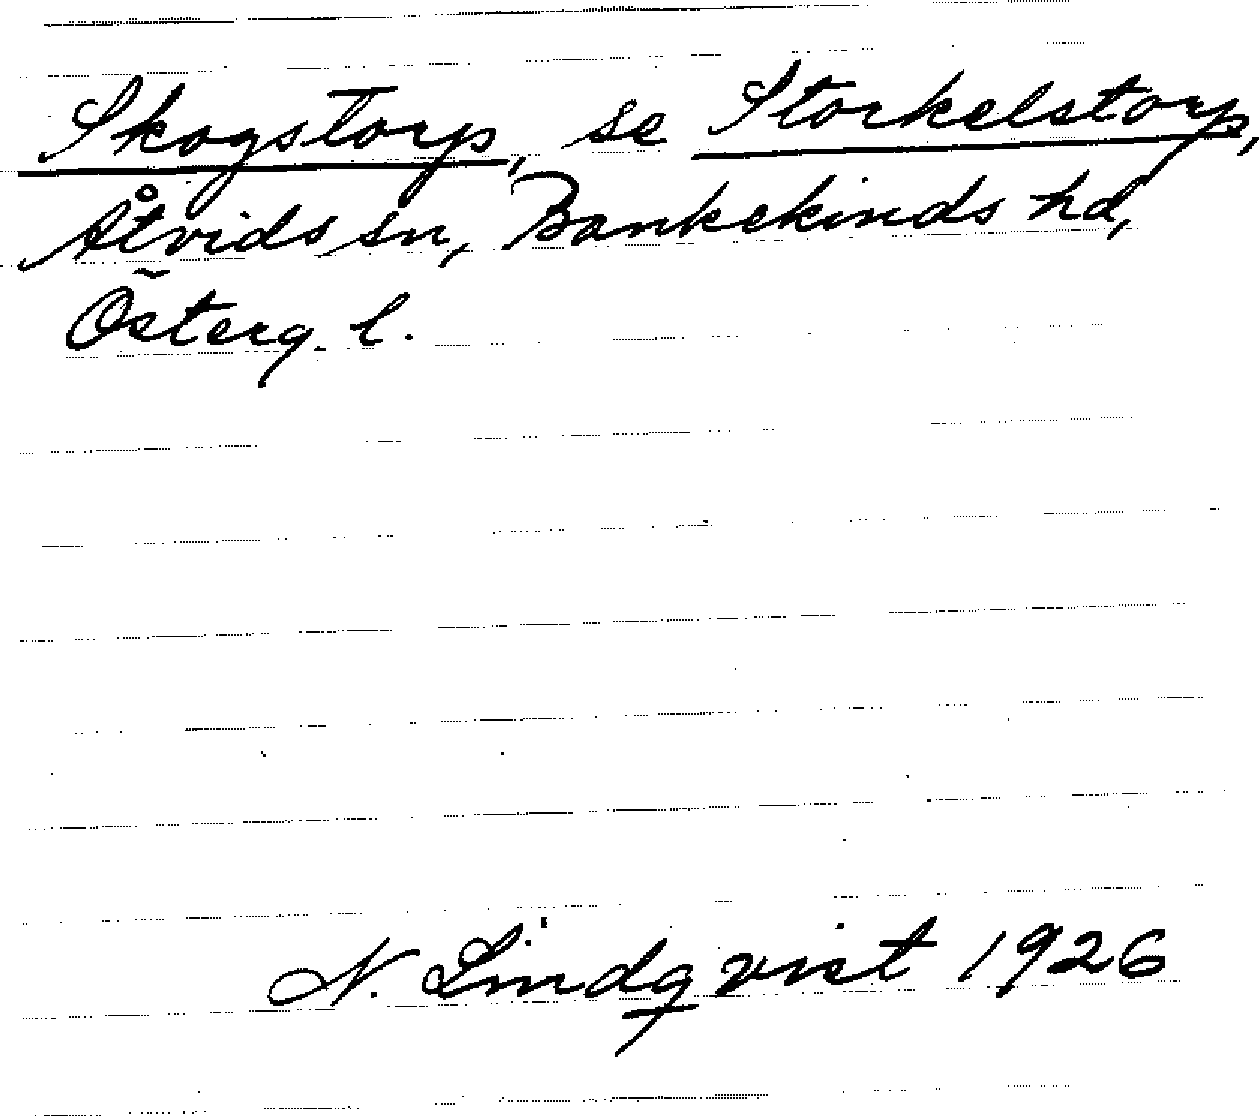 Skogstorp, se Storkelstorp,
Åtvids sn, Bankekinds hd,
Österg. l.
N. Lindqvist 1926